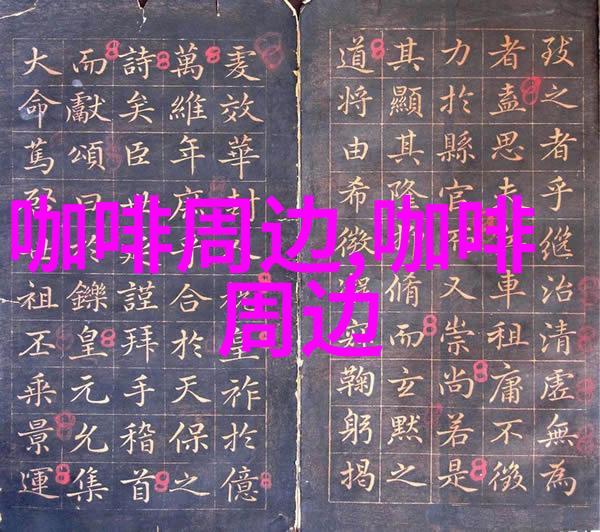 咖啡周边,咖啡
周边
致之者乎继治清虛無為
者盍思車租庸不徵
力於縣官又崇尚若是
其顯其降脩而玄默之
道將由希微鞠躬揭
虔效華封祚於億
萬維年底合於天保之
詩矣臣謹拜手稽首
而獻頌曰於鑠皇元允集
大命篤祖丕乘景運